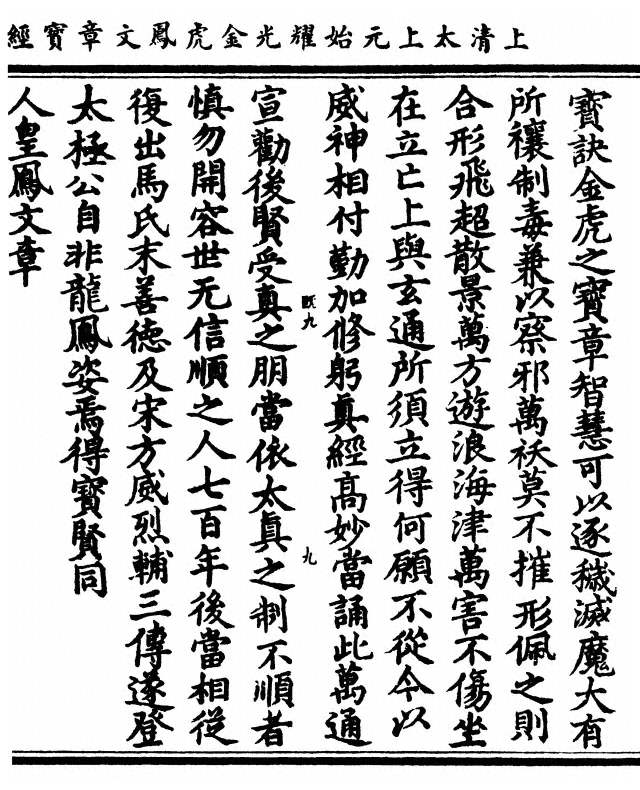 上清太上元始耀光金虎鳳文章寶經
寶訣金虎之寶章智慧可以逐穢滅魔大有
所禳制毒兼以察邪萬祅莫不摧形佩之則
合形飛超散景萬方遊浪海津萬害不傷坐
在立亡上與玄通所須立得何願不從今以
威神相付勤加修躬真經高妙當誦此萬通
宣勸後賢受真之朋當依太真之制不順者
慎勿開容世无信順之人七百年後當相從
復出馬氏末善德及宋方威烈輔三傳遂登
太極公自非龍鳳姿焉得寶賢同
人皇鳳文章
既九
九